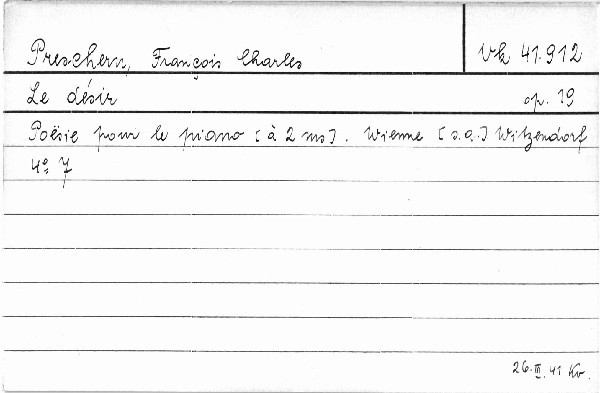 Preschern, François Charles Vk 41.912
Le désir op. 19
Poësie pour le piano [à 2 ms]. Wienne [s.a.] Witzendorf
4° 7
26.III.41 Kv.